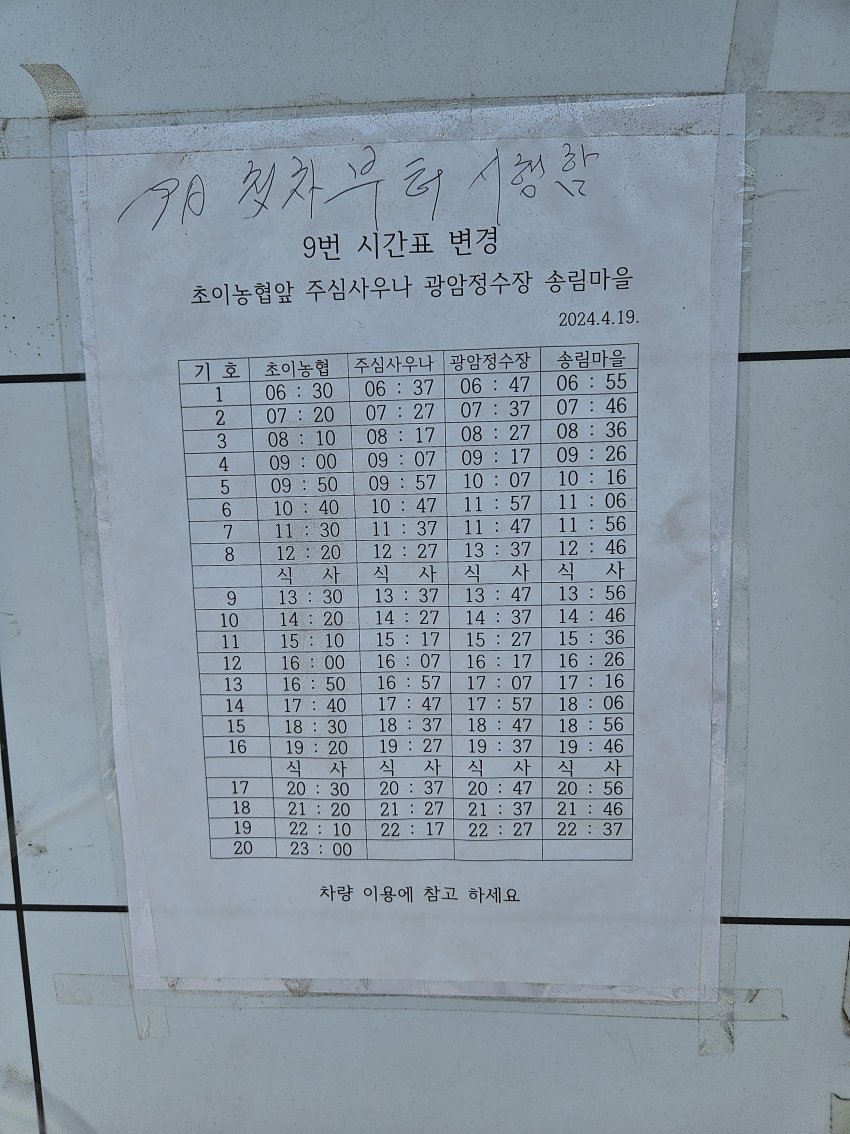 첫차부터 시행함
9번 시간표 변경
초이농협앞 주심사우나 광암정수장 송림마을
2024.4.19.
기 호 초이농협 주심사우나 광암정수장 송림마을
1 06 : 30 06 : 37 06 : 47 06 : 55
2 07 : 20 07 : 27 07 : 37 07 : 46
3 08 : 10 08 : 17 08 : 27 08 : 36
4 09 : 00 09 : 07 09 : 17 09 : 26
5 09 : 50 09 : 57 10 : 07 10 : 16
6 10 : 40 10 : 47 11 : 57 11 : 06
7 11 : 30 11 : 37 11 : 47 11 : 56
8 12 : 20 12 : 27 13 : 37 12 : 46
식 사 식 사 식 사 식 사
9 13 : 30 13 : 37 13 : 47 13 : 56
10 14 : 20 14 : 27 14 : 37 14 : 46
11 15 : 10 15 : 17 15 : 27 15 : 36
12 16 : 00 16 : 07 16 : 17 16 : 26
13 16 : 50 16 : 57 17 : 07 17 : 16
14 17 : 40 17 : 47 17 : 57 18 : 06
15 18 : 30 18 : 37 18 : 47 18 : 56
16 19 : 20 19 : 27 19 : 37 19 : 46
식 사 식 사 식 사 식 사
17 20 : 30 20 : 37 20 : 47 20 : 56
18 21 : 20 21 : 27 21 : 37 21 : 46
19 22 : 10 22 : 17 22 : 27 22 : 37
20 23 : 00
차량 이용에 참고 하세요